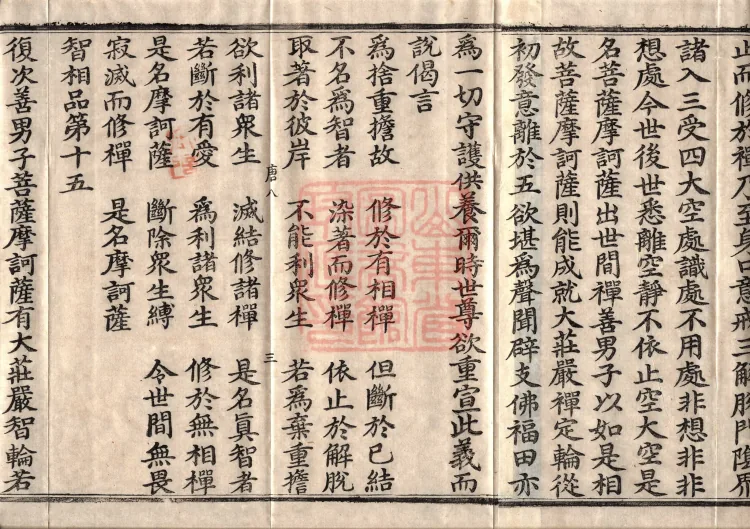 止而修於禪乃至身口意戒三解脫門陰界
諸入三受四大空處識處不用處非想非非
想處今世後世悉離空靜不依止空大空是
名菩薩摩訶薩出世間禪善男子以如是相
故菩薩摩訶薩則能成就大莊嚴禪定輪從
初發意離於五欲堪爲聲聞辟支佛福田亦
爲一切守護供養爾時世尊欲重宣此義而
說偈言
爲捨重擔故　修於有相禪　但斷於已結
不名爲智者　染著而修禪　依止於解脫
取著於彼岸　不能利衆生　若爲棄重擔
唐八　三
欲利諸衆生　滅結修諸禪　是名眞智者
若斷於有愛　爲利諸衆生　修於無相禪
是名摩訶薩　斷除衆生縛　令世間無畏
寂滅而修禪　是名摩訶薩
智相品第十五
復次善男子菩薩摩訶薩有大莊嚴智輪若